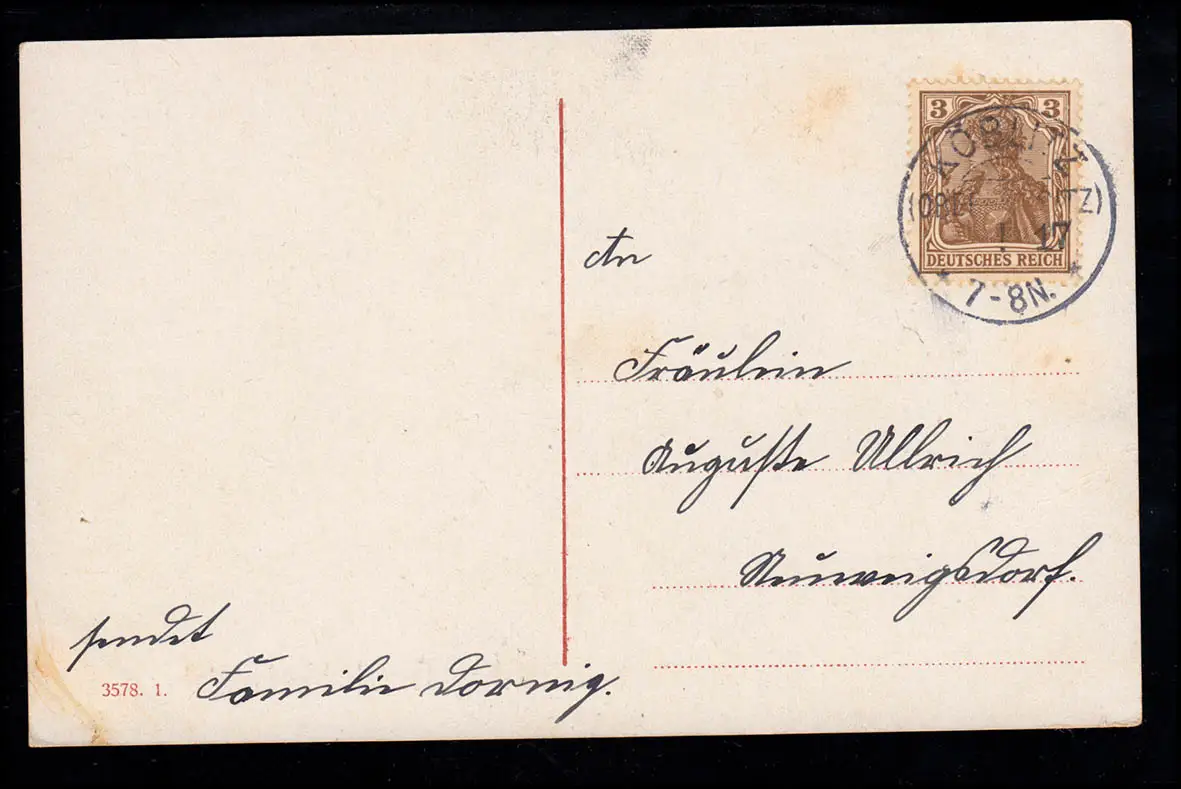 3 3
KÖBLITZ
DEUTSCHES REICH
17
7-8N.
An
Fräulein
Auguste Ullrich
Neuweigsdorf.
sendet
Familie Dornig.
3578. 1.